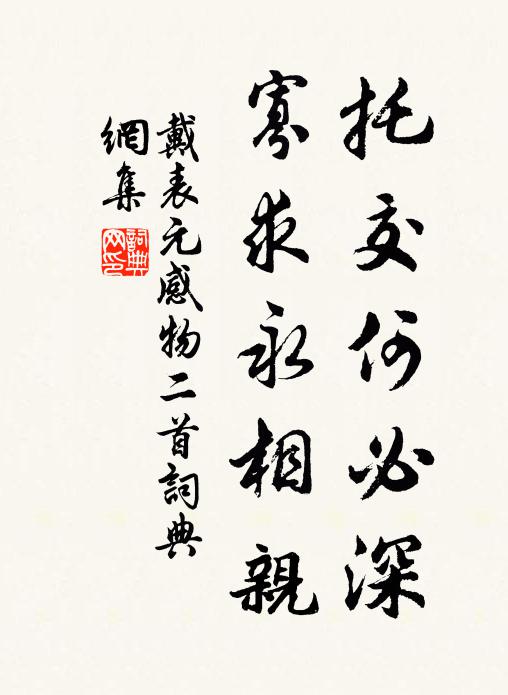 托交何必深
寡求永相親
戴表元感物二首詞典
網集
詞典
网印